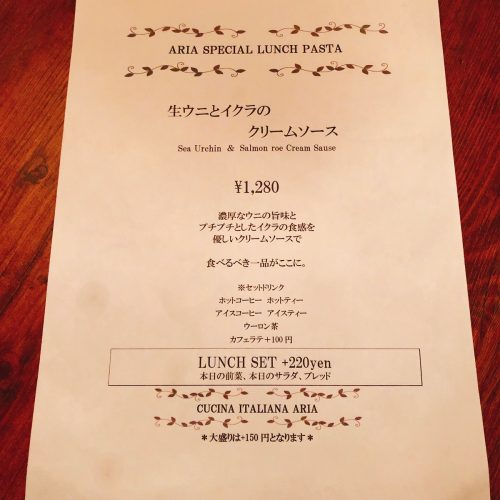 ARIA SPECIAL LUNCH PASTA
生ウニとイクラの
クリームソース
Sea Urchin & Salmon roe Cream Sause
¥1,280
濃厚なウニの旨味と
プチプチとしたイクラの食感を
優しいクリームソースで
食べるべき一品がここに。
※セットドリンク
ホットコーヒー ホットティー
アイスコーヒー アイスティー
ウーロン茶
カフェラテ+100円
LUNCH SET +220yen
本日の前菜、本日のサラダ、ブレッド
CUCINA ITALIANA ARIA
*大盛りは+150円となります*